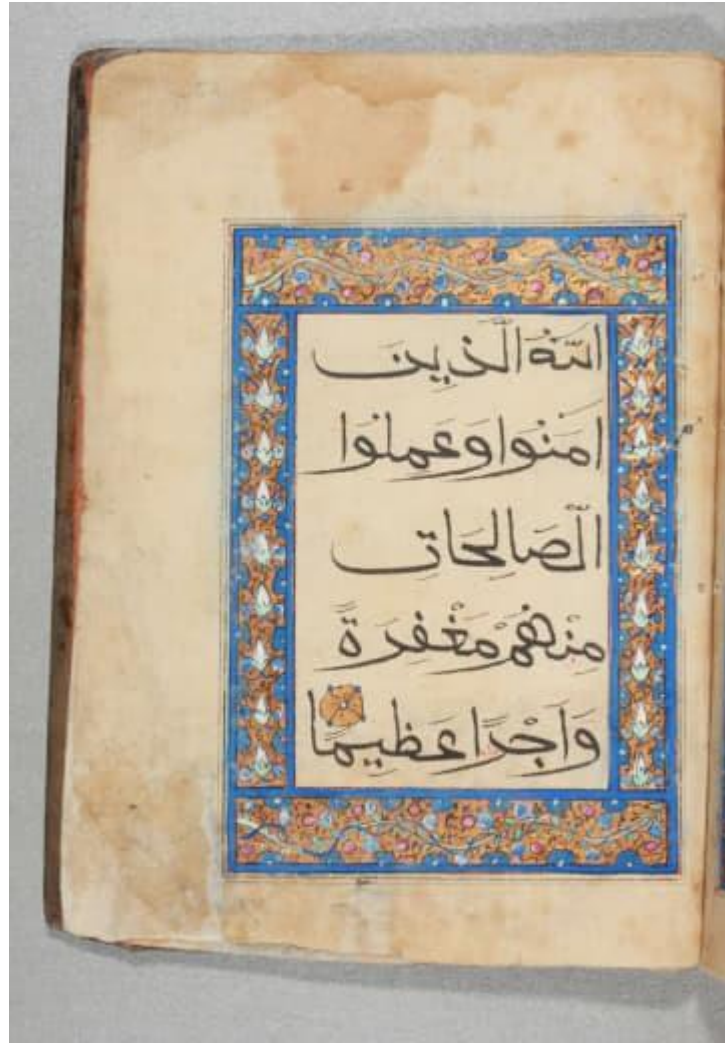 اللَّهُ الَّذِينَ
اٰمَنُوا وَعَمِلُوا
الصَّالِحَاتِ
مِنْهُمْ مَغْفِرَةً
وَأَجْرًا عَظِيمًا